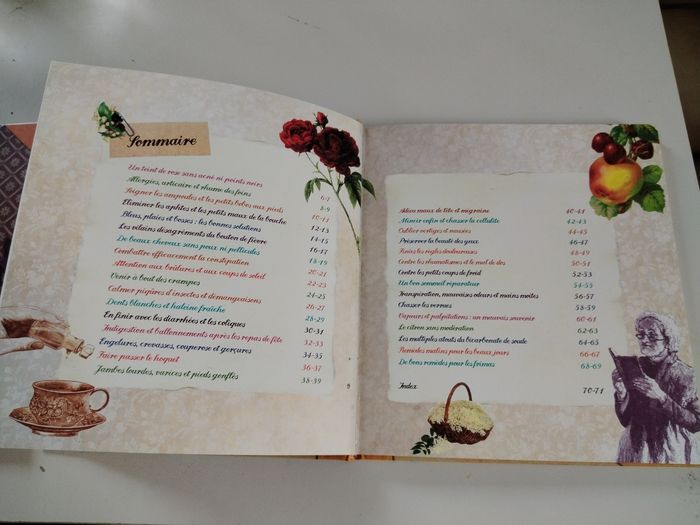 Sommaire
Un teint de rose sans acné ni points noirs 6-7
Allergies, urticaire et rhume des foins 8-9
Soigner les ampoules et les petits bobos aux pieds 10-11
Éliminer les aphtes et les petits maux de la bouche 12-13
Bleus, plaies et bosses : les bonnes solutions 14-15
Les vilains désagréments du bouton de fièvre 16-17
De beaux cheveux sans poux ni pellicules 18-19
Combattre efficacement la constipation 20-21
Attention aux brûlures et aux coups de soleil 22-23
Venir à bout des crampes 24-25
Calmer piqûres d'insectes et démangeaisons 26-27
Dents blanches et haleine fraîche 28-29
En finir avec les diarrhées et les coliques 30-31
Indigestion et ballonnements après les repas de fête 32-33
Engelures, crevasses, couperose et gerçures 34-35
Faire passer le hoquet 36-37
Jambes lourdes, varices et pieds gonflés 38-39
Adieu maux de tête et migraine 40-41
Mincir enfin et chasser la cellulite 42-43
Oublier vertiges et nausées 44-45
Préserver la beauté des yeux 46-47
Finies les règles douloureuses 48-49
Contre les rhumatismes et le mal de dos 50-51
Contre les petits coups de froid 52-53
Un bon sommeil réparateur 54-55
Transpiration, mauvaises odeurs et mains moites 56-57
Chasser les verrues 58-59
Vapeurs et palpitations : un mauvais souvenir 60-61
Le citron sans modération 62-63
Les multiples atouts du bicarbonate de soude 64-65
Remèdes malins pour les beaux jours 66-67
De bons remèdes pour les frimas 68-69
Index 70-71